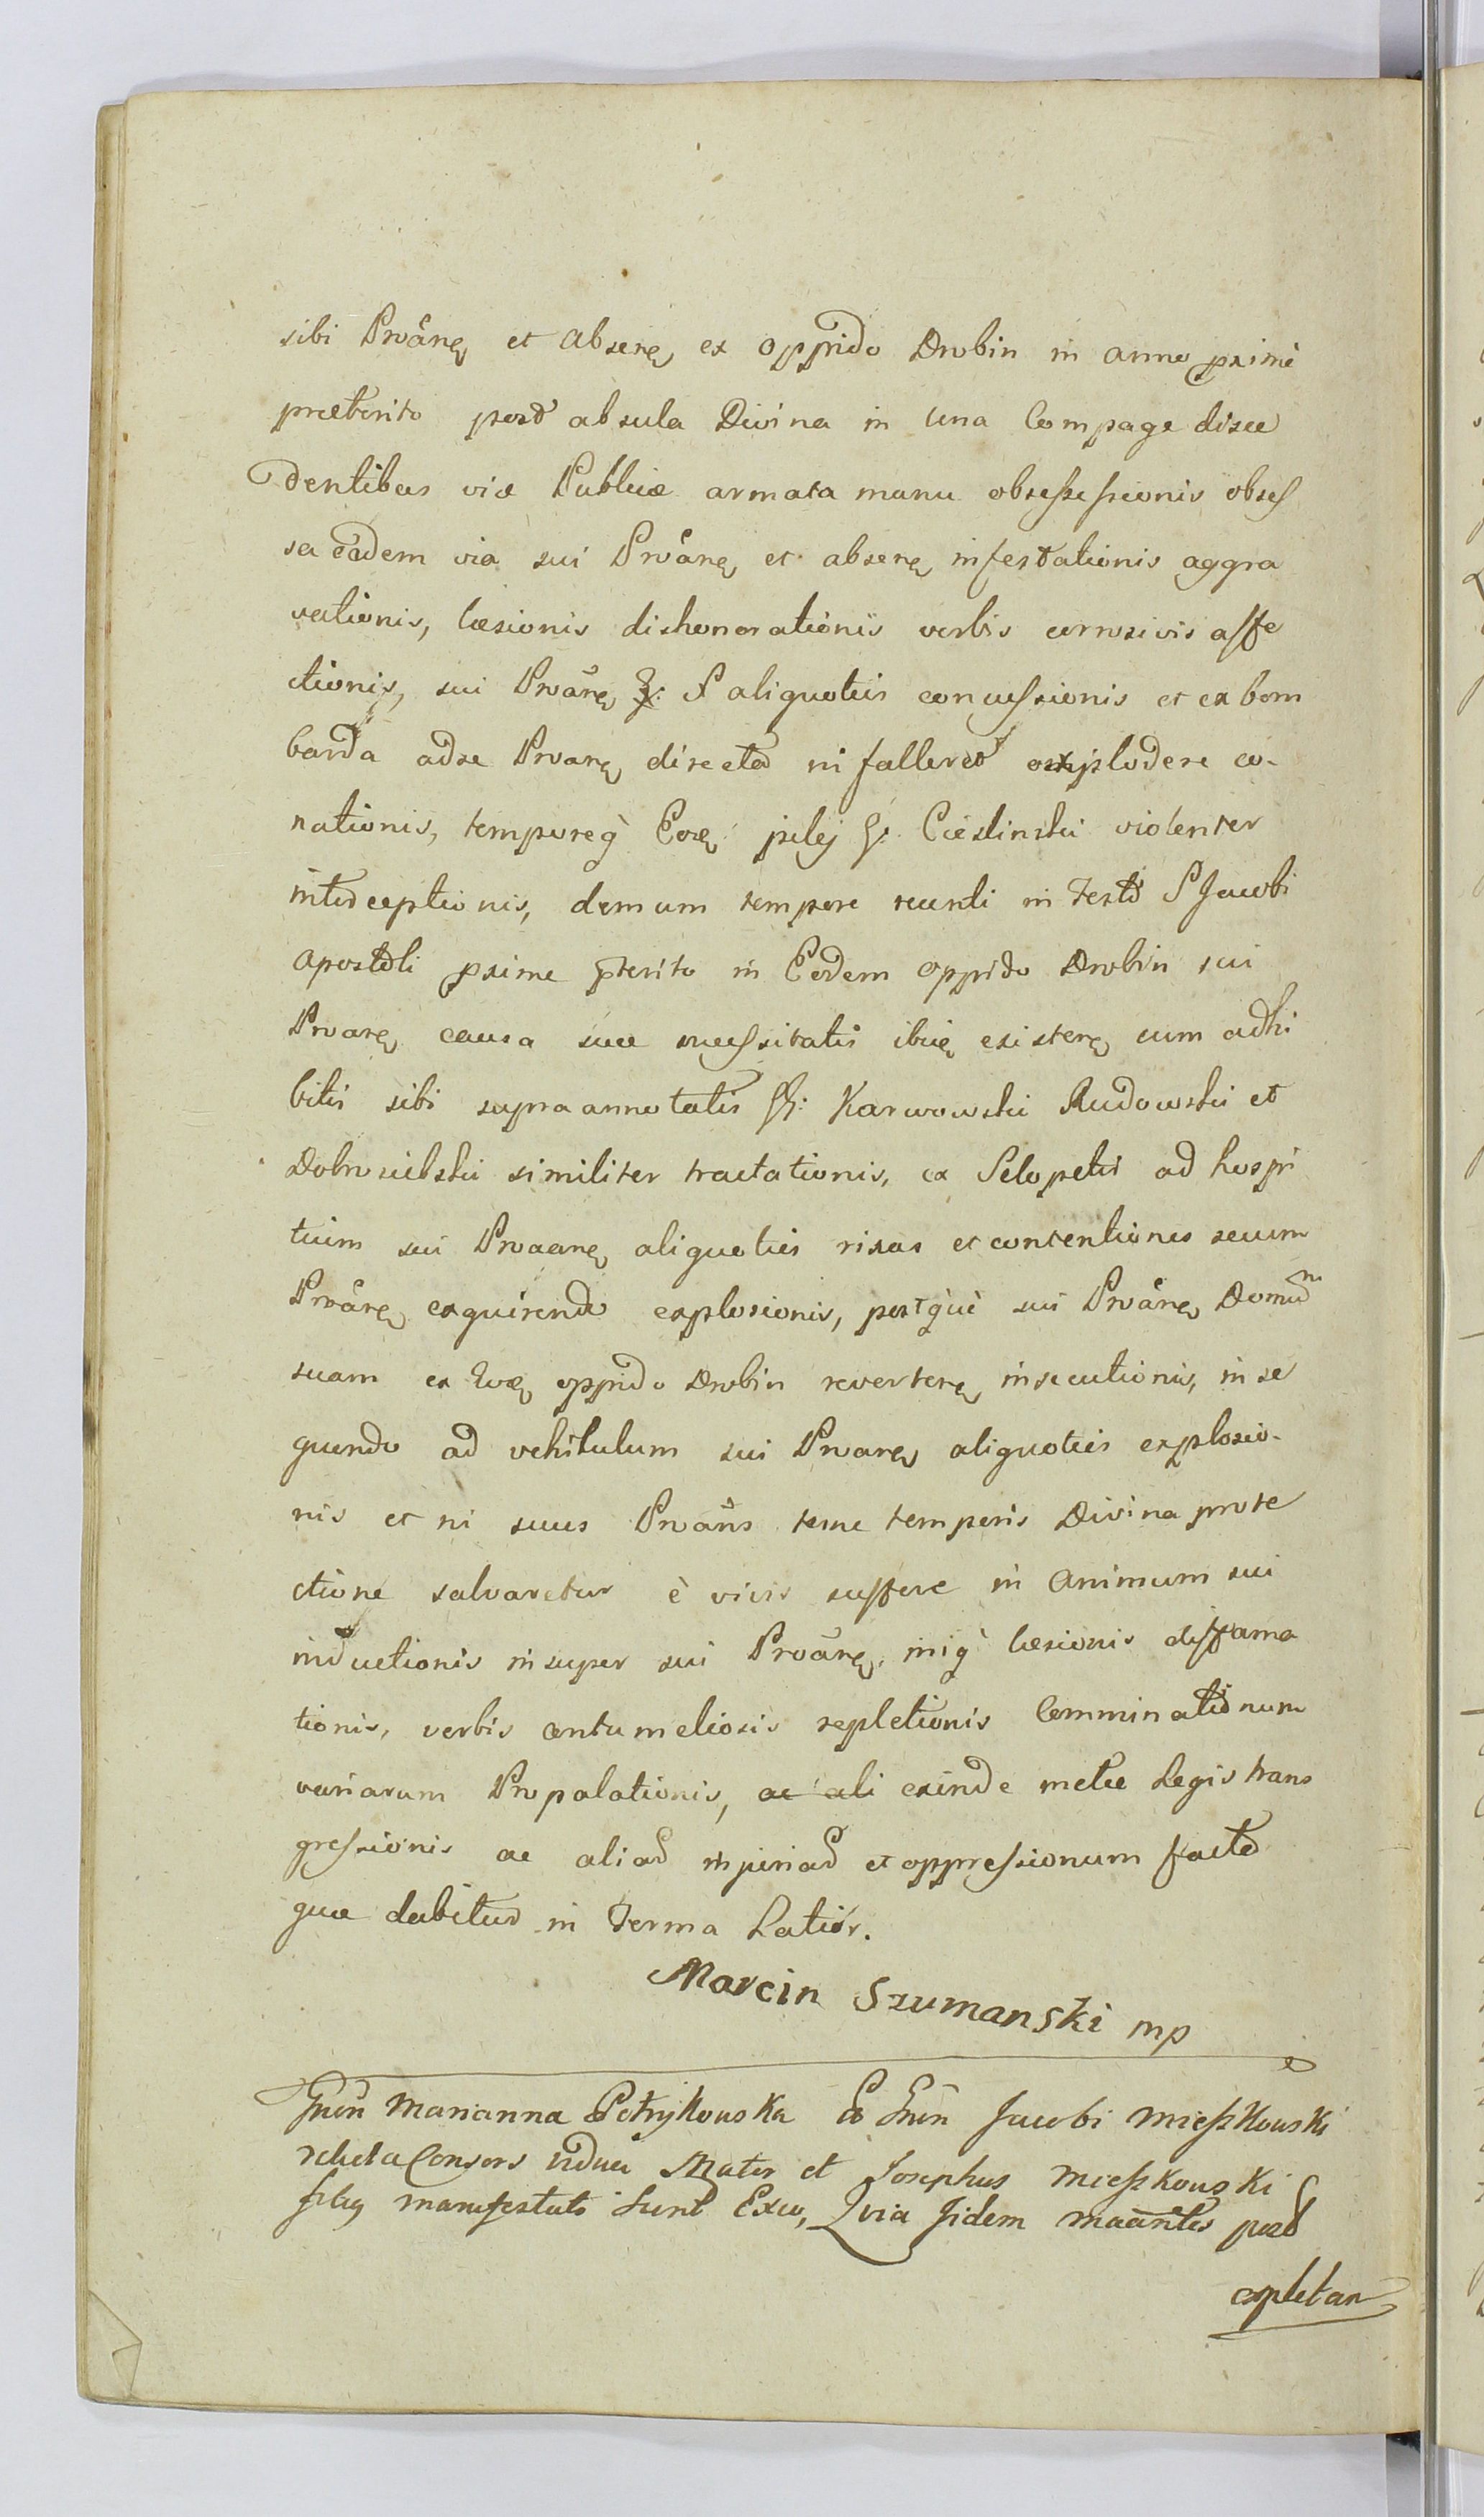 sibi Proãnę et absenę ex oppido Drobin in anno pximè
præterito post absula Divina in una Compage disce
dentibus viæ Publicæ armata manu obsessessionis obses
sa eâdem via sui Proãnę et absenę infestationis aggra
vationis, læsionis dishonorationis verbis corrosivis affe
ctionis, sui Proãnę G: S aliquoties concussionis et ex bom
barda ad se Proanę directa ni falleret explodere co-
nationis, temporeq̀ Eoę pilej G: Cieslinski violenter
interceptionis, demum tempore recenti in Festo S Jacobi
Apostoli pxime pterito in Eodem oppido Drobin sui
Proanę causa suæ necessitatis ibię existenę cum adhi
bitis sibi supra annotatis GG: Karwowski Rudowski et
Dobrosielski similiter tractationis, ex Sclopetis ad hospi
tium sui Proaanę aliquoties rixas et contentiones secum
Proãnę exquirendo explosionis, postq̀uè sui Proãnę Domum
suam ex Eoę oppido Drobin revertenę insecutionis, inse
quendo ad vehiculum sui Proanę aliquoties explosio-
nis et ni suus Proãns tunc temporis Divina prote
ctione salvaretur è vivis suffere in Animum sui
inductionis insuper sui Proãnę iniq̀ læsionis diffama
tionis, verbis contumeliosis repletionis Comminationum
variarum Propalationis, ac ali exinde metæ Legis trans
gressionis ac aliar injuriar et oppressionum facta
quæ dabitur in Terma Latiór.
Marcin Szumanski mp
Gnen Marianna Petrykouska Gnen Jacobi Mieszkouski
relicta Consors vidua Mater et Josephus Mieszkouski
filig manifestati sunt Exw, Quia Jidem maãntes post
expletan